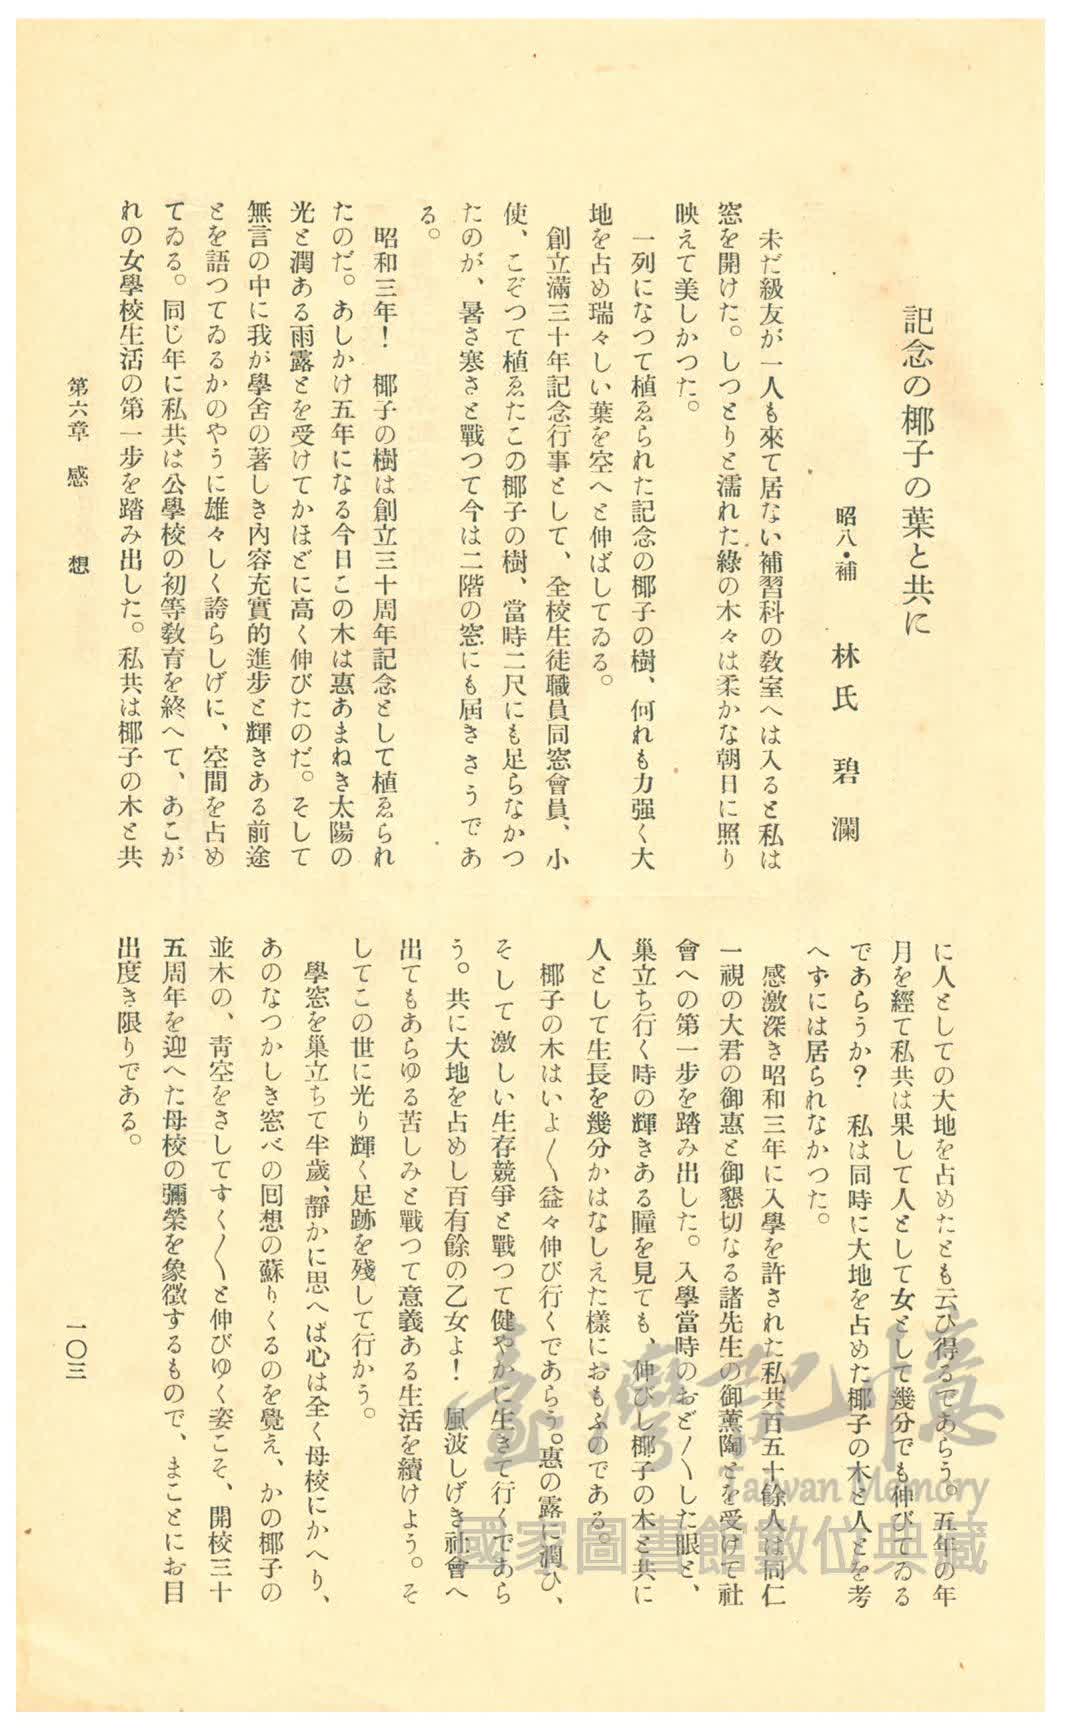 記念の椰子の葉と共に
昭八・補　林氏　碧瀾
未だ級友が一人も來て居ない補習科の教室へは入ると私は
窓を開けた。しつとりと濡れた綠の木々は柔かな朝日に照り
映えて美しかつた。
一列になつて植ゑられた記念の椰子の樹、何れも力强く大
地を占め瑞々しい葉を空へと伸ばしてゐる。
創立滿三十年記念行事として、全校生徒職員同窓會員、小
使、こぞつて植ゑたこの椰子の樹、當時二尺にも足らなかつ
たのが、暑さ寒さと戰つて今は二階の窓にも屆きさうであ
る。
昭和三年！　椰子の樹は創立三十周年記念として植ゑられ
たのだ。あしかけ五年になる今日この木は惠あまねき太陽の
光と潤ある雨露とを受けてかほどに高く伸びたのだ。そして
無言の中に我が學舍の著しき內容充實的進步と輝きある前途
とを語つてゐるかのやうに雄々しく誇らしげに、空間を占め
てゐる。同じ年に私共は公學校の初等教育を終へて、あこが
れの女學校生活の第一步を踏み出した。私共は椰子の木と共
に人としての大地を占めたとも云ひ得るであらう。五年の年
月を經て私共は果して人として女として幾分でも伸びてゐる
であらうか？　私は同時に大地を占めた椰子の木と人とを考
へずには居られなかつた。
感激深き昭和三年に入學を許された私共百五十餘人は同仁
一視の大君の御惠と御懇切なる諸先生の御薰陶とを受けて社
會への第一步を踏み出した。入學當時のおど〳〵した眼と、
巢立ち行く時の輝きある瞳を見ても、伸びし椰子の木と共に
人として生長を幾分かはなしえた樣におもふのである。
椰子の木はいよ〳〵益々伸び行くであらう。惠の露に潤ひ、
そして激しい生存競爭と戰つて健やかに生きて行くであら
う。共に大地を占めし百有餘の乙女よ！　風波しげき社會へ
出てもあらゆる苦しみと戰つて意義ある生活を續けよう。そ
してこの世に光り輝く足跡を殘して行かう。
學窓を巢立ちて半歲、靜かに思へば心は全く母校にかへり、
あのなつかしき窓べの回想の蘇りくるのを覺え、かの椰子の
並木の、靑空をさしてすく〳〵と伸びゆく姿こそ、開校三十
五周年を迎へた母校の彌榮を象徵するもので、まことにお目
出度き限りである。
第六章　感　想
一〇三
臺灣記憶
Taiwan Memory
國家圖書館數位典藏